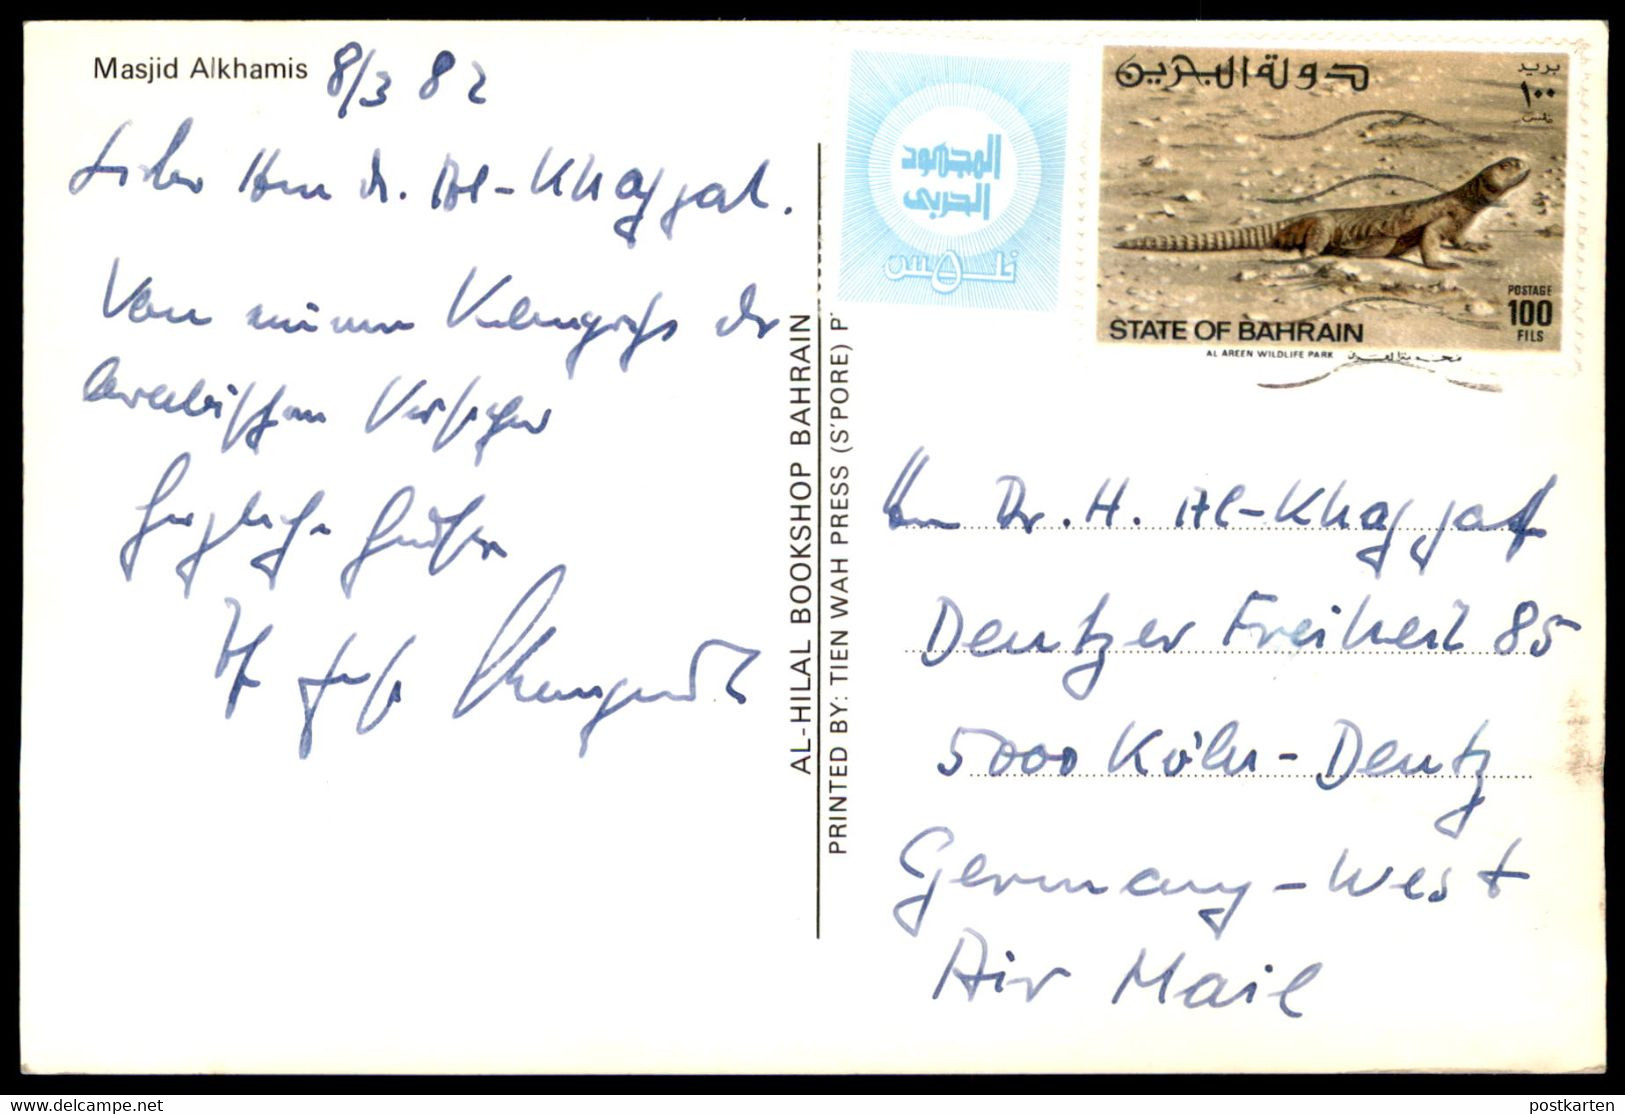 Masjid Alkhamis 8/3 82
Lieber Herr Dr. Al-Khaffaf.
Von meinem der
Arabischen
herzliche Grüße
Ihr
AL-HILAL BOOKSHOP BAHRAIN
PRINTED BY: TIEN WAH PRESS (S'PORE) P
المجهود
الحربي
٥ فلس
دولة البحرين
بريد
١٠٠
فلس
POSTAGE
100
FILS
STATE OF BAHRAIN
AL AREEN WILDLIFE PARK
Herrn Dr. H. Al-Khaffaf
Deutzer Freiheit 85
5000 Köln-Deutz
Germany-West
Air Mail
delcampe.net
postkarten